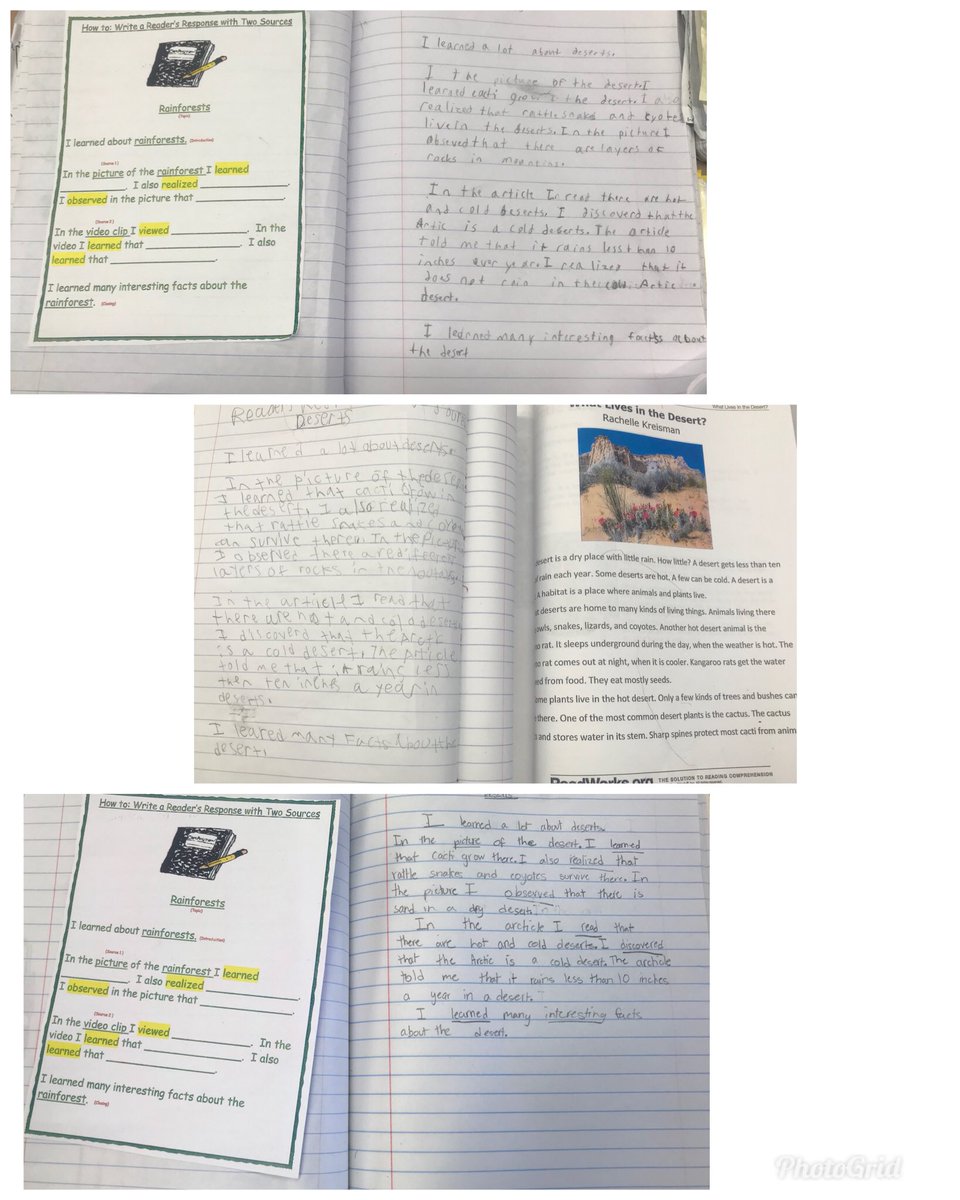 How to: Write a Reader's Response with Two Sources
Rainforests
(Topic)
I learned about rainforests. (Introduction)
(Source 1)
In the picture of the rainforest I learned
____________. I also realized ________________.
I observed in the picture that ________________.
(Source 2)
In the video clip I viewed ________________. In the
video I learned that ________________. I also
learned that ________________.
I learned many interesting facts about the
rainforest. (Closing)
I learned a lot about deserts.
I the picture of the desert.I
learned cacti grow the desert. I
realized that rattle snake and
live in the deserts. In the picture I
obseved that there are layers of
rocks in
In the article I read there are hot
and cold deserts. I discoverd that the
Artic is a cold deserts. The article
told me that it rains less than 10
inches ever year. I realized that it
does not rain in the Artic
desert.
I learned many interesting facts about
the desert
Deserts
I learned a lot about deserts.
In the picture of the
I learned that cacti grow in
the desert. I also realized
that rattle snakes and
can survive there. In the
I observed there are
layers of rocks in the
In the article I read that
there are hot and cold
I discoverd that the
is a cold desert. The
told me that it rains less
then ten inches a year in
deserts.
I leared many Facts About the
desert.
What Lives in the Desert?
Lives in the Desert?
Rachelle Kreisman
desert is a dry place with little rain. How little? A desert gets less than ten
rain each year. Some deserts are hot. A few can be cold. A desert is a
A habitat is a place where animals and plants live.
deserts are home to many kinds of living things. Animals living there
owls, snakes, lizards, and coyotes. Another hot desert animal is the
rat. It sleeps underground during the day, when the weather is hot. The
rat comes out at night, when it is cooler. Kangaroo rats get the water
from food. They eat mostly seeds.
plants live in the hot desert. Only a few kinds of trees and bushes can
there. One of the most common desert plants is the cactus. The cactus
and stores water in its stem. Sharp spines protect most cacti from anim
ReadWorks.org THE SOLUTION TO READING COMPREHENSION
How to: Write a Reader's Response with Two Sources
Rainforests
(Topic)
I learned about rainforests. (Introduction)
(Source 1)
In the picture of the rainforest I learned
____________. I also realized ________________.
I observed in the picture that ________________.
(Source 2)
In the video clip I viewed ________________. In the
video I learned that ________________. I also
learned that ________________.
I learned many interesting facts about the
rainforest. (Closing)
I learned a lot about deserts.
In the picture of the desert. I learned
that cacti grow there. I also realized that
rattle snakes and coyotes survive there. In
the picture I observed that there is
sand in a dry desert.
In the archicle I read that
there are hot and cold deserts. I discovered
that the Arctic is a cold desert. The archicle
told me that it rains less than 10 inches
a year in a desert.
I learned many interesting facts
about the desert.
PhotoGrid